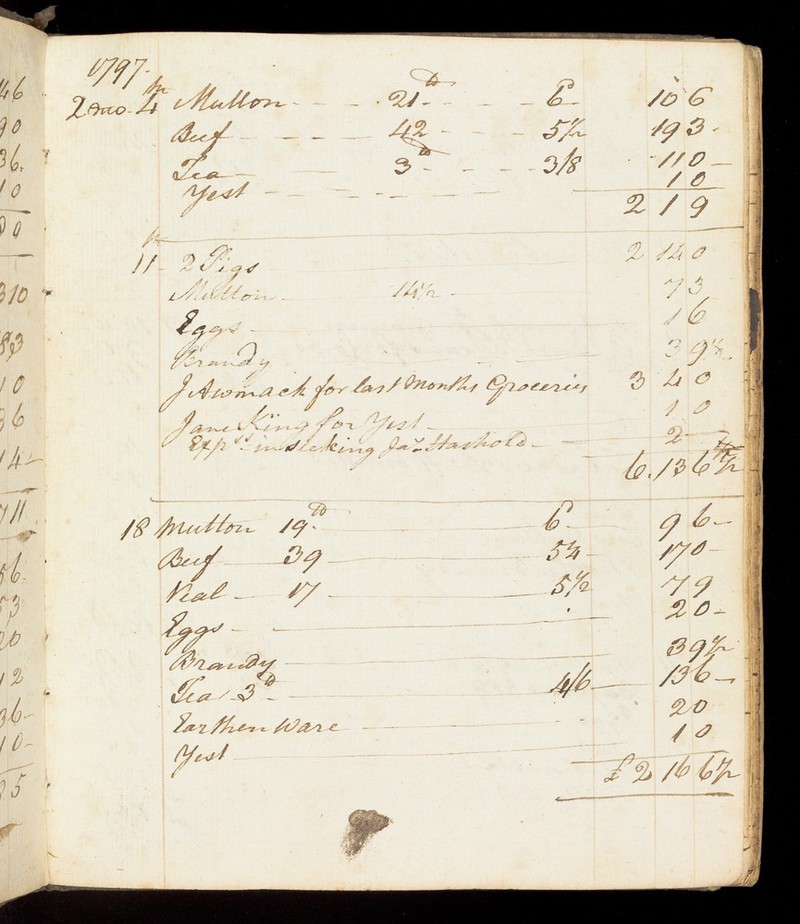 46
90
36.
10
00
310
83
10
36
14
711
56
53
20
12
36
10
35
1797.
2 mo. 4th Mutton 21 lb 6d 10 6
Beef 42 5½ 19 3
Tea 3 lb 3/8 11 0
Yest 1 0
2 1 9
11th 2 Pigs 2 14 0
Mutton 14½ 7 3
Eggs 1 6
Brandy 3 9½
J Awmack for last Months Groceries 3 4 0
Jane King for Yest 1 0
Exps in seeking Jas. 2
6. 13 6½
18 Mutton 19 lb 6d 9 6
Beef 39 5¼ 17 0
Veal 17 5½ 7 9
Eggs 2 0
Brandy 3 9½
Tea 3 lb 4/6 13 6
Earthen Ware 2 0
Yest 1 0
£ 2 16 6½